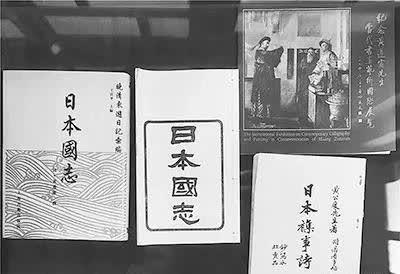 晚清東遊日記彙編
日本國志
日本國志
紀念黃遵憲先生
當代書畫藝術國際展覽
The International Exhibition on Contemporary Calligraphy
and Painting in Commemoration of Huang Zunxian
黃公度先生著
日本雜事詩